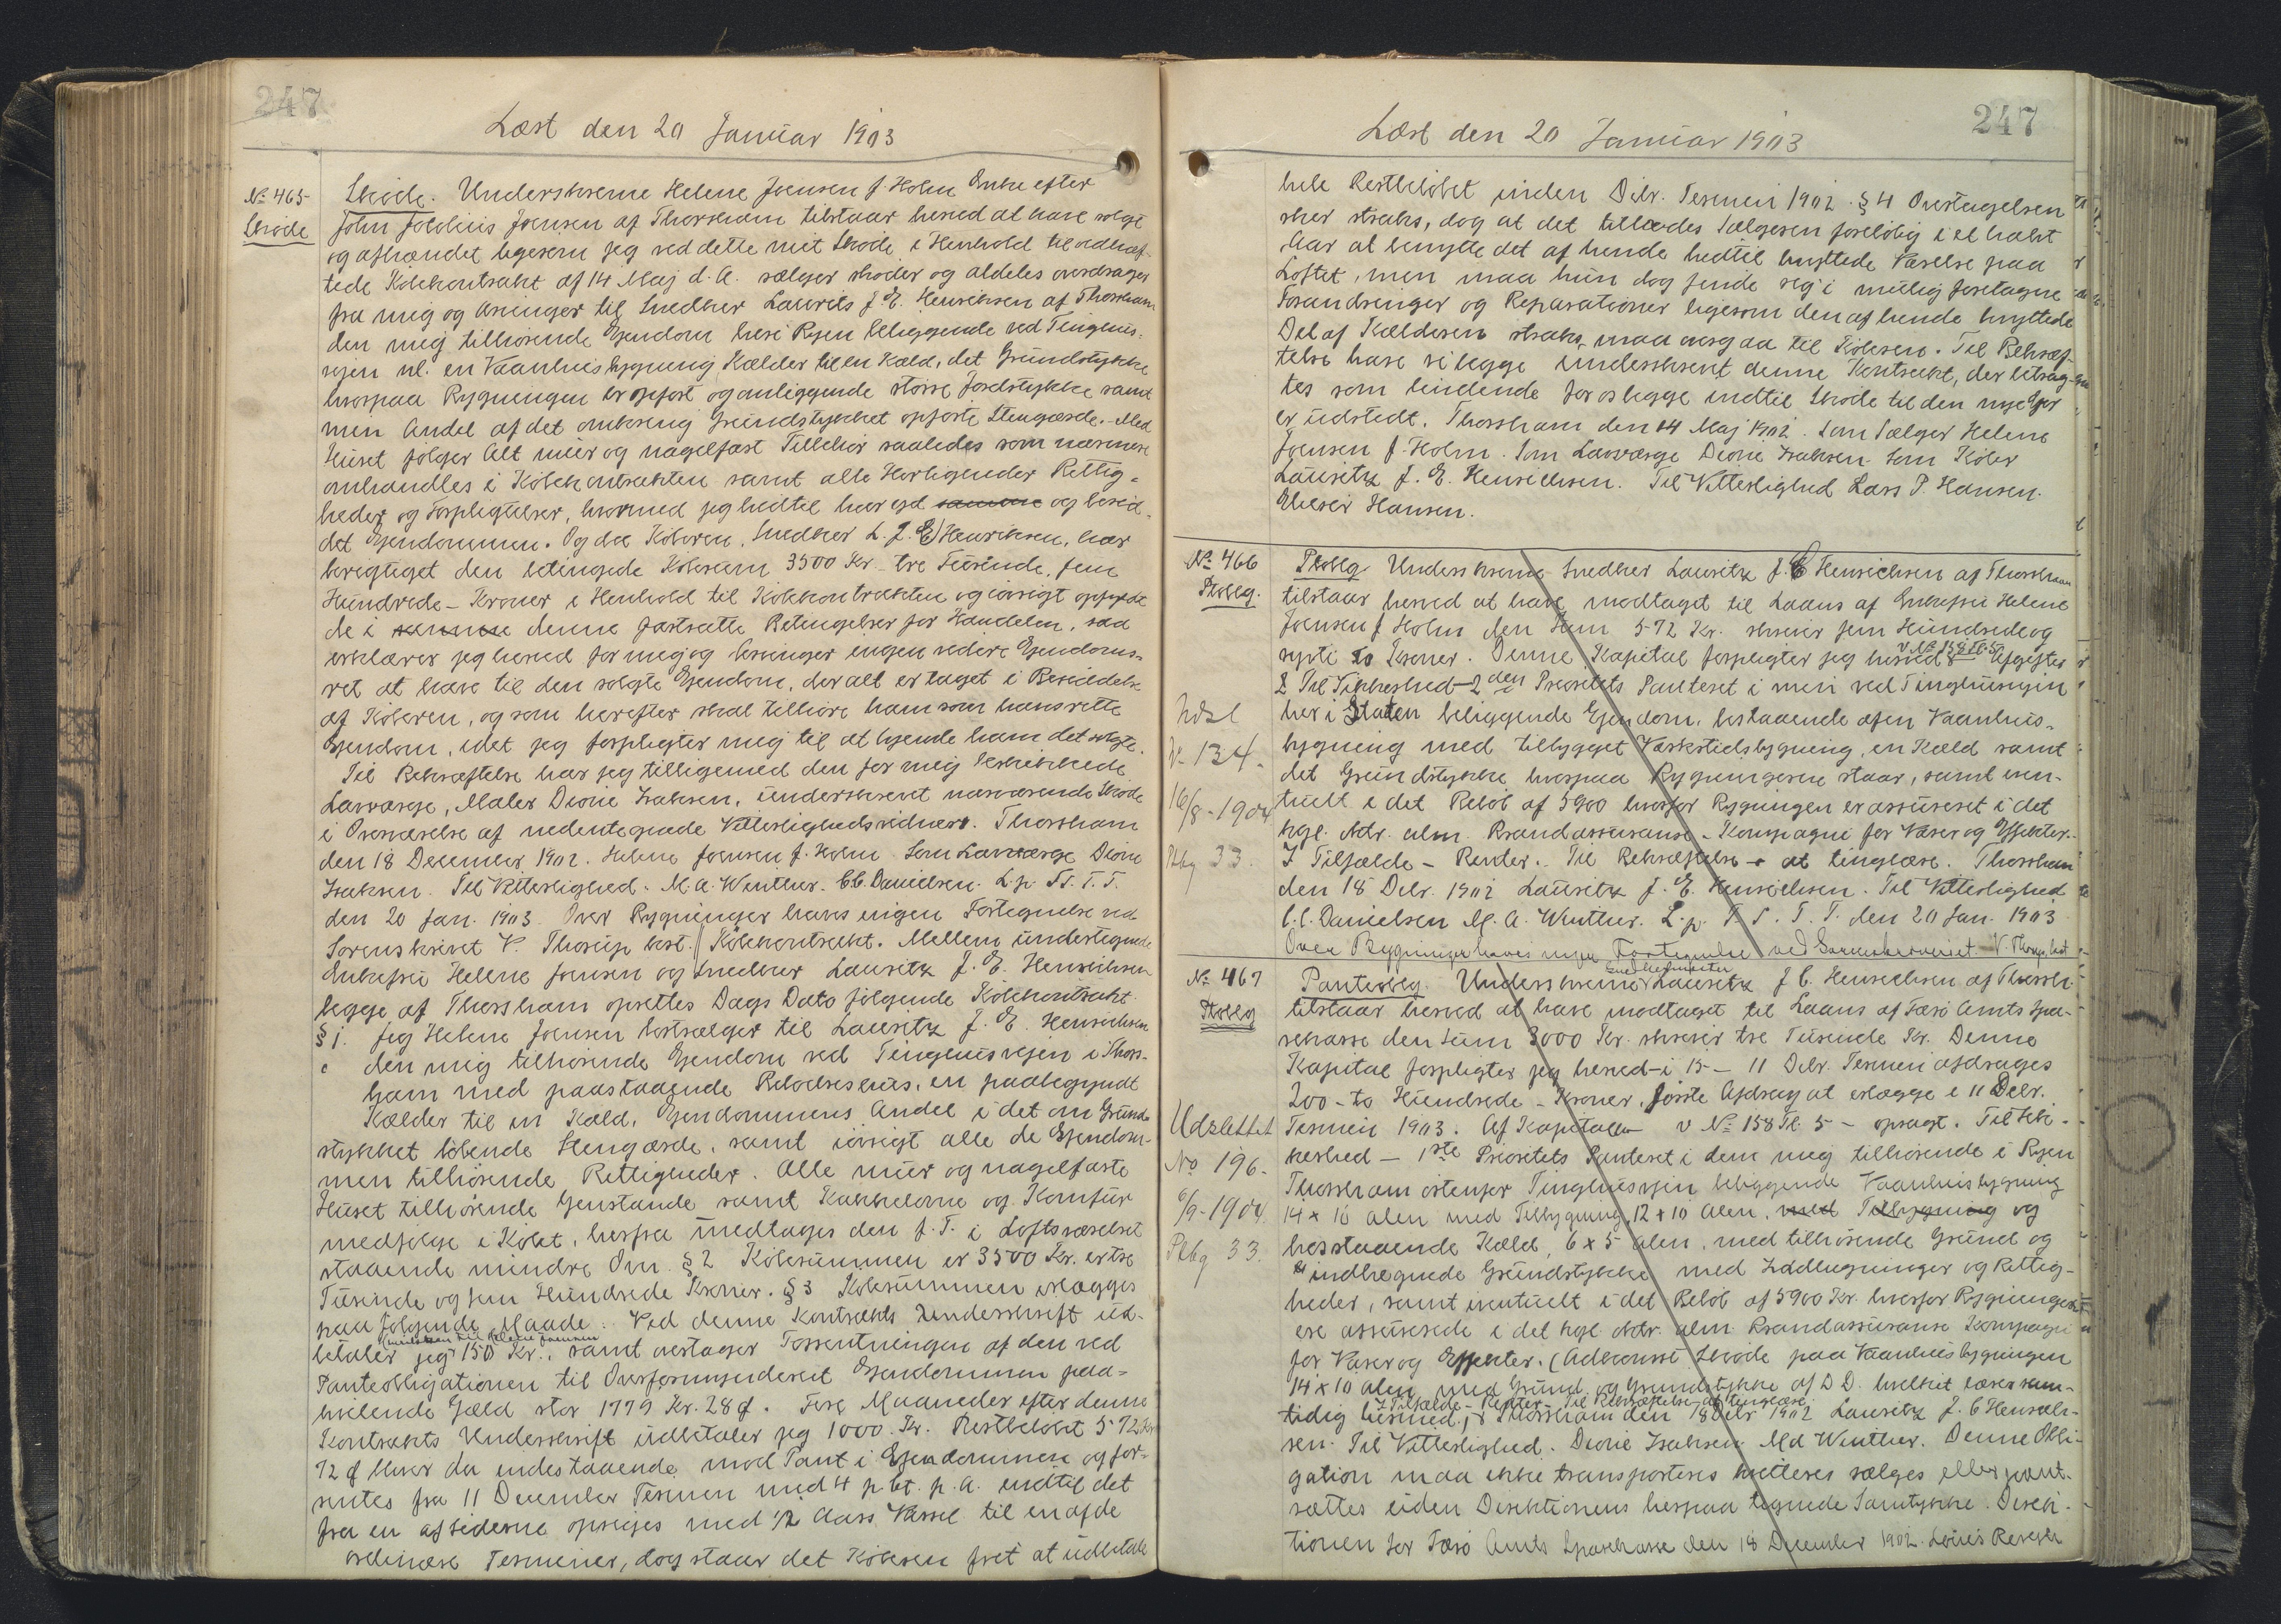 247
Læst den 20 Januar 1903
No 465
Skøde
Skøde. Underskrevne Helene Joensen f. Holm Enke efter
John Joensen af Thorshavn tilstaar herved at have solgt
og afhændet ligesom jeg ved dette mit Skøde i Henhold til
tede Købekontrakt af 14 Maj d. A. sælger skøder og aldeles overdrager
fra mig og Arvinger til Snedker Laurits J. E. Henriksen af Thorshavn
den mig tilhørende Ejendom her i Byen beliggende ved Tinghus-
vejen nl. en Vaanhusbygning Kælder til en Kæld, det Grundstykke
hvorpaa Bygningen er opført og omliggende større Jordstykke samt
min Andel af det omkring Grundstykket opførte Stengærde. Med
Huset følger Alt mur og nagelfast Tilbehør saaledes som nærmere
omhandles i Købekontrakten samt alle Herligheder Rettig-
heder og Forpligtelser, hvormed jeg hidtil har ejd samme og besid-
det Ejendommen. Og da Køberen, Snedker L. J. E. Henriksen, har
berigtiget den betingede Købesum 3500 Kr. tre Tusinde, fem
Hundrede - Kroner i Henhold til Købekontrakten og iøvrigt opfyldt
de i samme denne fastsatte Betingelser for Handelen, saa
erklærer jeg herved for mig og Arvinger ingen videre Ejendoms-
ret at have til den solgte Ejendom, der alt er taget i Besiddelse
af Køberen, og som herefter skal tilhøre ham som hans rette
Ejendom, idet jeg forpligter mig til at hjemle ham det solgte.
Til Bekræftelse har jeg tilligemed den for mig beskikkede
Lavværge, Maler Dione Isaksen, underskrevet nærværende Skøde
i Overværelse af nedentegnede Vitterlighedsvidner. Thorshavn
den 18 December 1902. Helene Joensen f. Holm Som Lavværge Dione
Isaksen. Til Vitterlighed. M. A. Winther. C.C. Danielsen. L. p. S. T. T.
den 20 Jan. 1903. Over Bygninger haves ingen Fortegnelse ved
Sorenskriveret V. Thorup kst. Købekontrakt. Mellem undertegnede
Enkefru Helene Joensen og Snedker Lauritz J. E. Henrichsen
begge af Thorshavn oprettes Dags Dato følgende Købekontrakt.
§ 1. Jeg Helene Joensen bortsælger til Lauritz J. E. Henrichsen
den mig tilhørende Ejendom ved Tinghusvejen i Thors-
havn med paastaaende Beboelseshus, en paabegyndt
Kælder til en Kæld, Ejendommens Andel i det om Grund-
stykket løbende Stengærde, samt iøvrigt alle de Ejendom-
men tilhørende Rettigheder. Alle mur og nagelfaste
Huset tilhørende Genstande samt Kakkelovne og Komfur
medfølge i Købet, herfra undtages den f. T. i Loftsværelset
staaende mindre Ovn. § 2 Købesummen er 3500 Kr. er tre
Tusinde og fem Hundrede Kroner. § 3 Købesummen erlægges
paa følgende Maade: Ved denne Kontrakts Underskrift ud-
betaler jeg 150 Kr., samt overtager Forrentningen af den ved
Panteobligationen til Overformynderiet Ejendommen paa-
hvilende Gæld stor 1779 Kr. 28 ø. Fire Maaneder efter denne
Kontrakts Underskrift udbetaler jeg 1000 Kr. Restbeløbet 572 Kr
72 ø bliver da indestaaende mod Pant i Ejendommen og for-
rentes fra 11 December Termin med 4 p. ct. p. A. indtil det
fra en af Siderne opsiges med 1/2 Aars Varsel til en af de
ordinære Terminer, dog staar det Køberen frit at udbetale
247
Læst den 20 Januar 1903
hele Restbeløbet inden Dcbr. Termin 1902. § 4 Overtagelsen
sker straks, dog at det tillades Sælgeren foreløbig i et halvt
Aar at benytte det af hende hidtil benyttede Værelse paa
Loftet, men maa hun dog finde sig i mulig foretagne
Forandringer og Reparationer ligesom den af hende benyttede
Del af Kælderen straks maa overgaa til Køberen. Til Bekræf-
telse have vi begge underskrevet denne Kontrakt, der betrag-
tes som bindende for os begge indtil Skøde til den nye Ejer
er udstedt. Thorshavn den 14 Maj 1902. Som Sælger Helene
Joensen f. Holm. Som Lavværge Dione Isaksen Som Køber
Lauritz J. E. Henrichsen. Til Vitterlighed Lars P. Hansen.
Hansen.
No 466
Ptoblg.
Ptoblg. Underskrevne Snedker Lauritz J. E. Henrichsen af Thorshavn
tilstaar herved at have modtaget til Laans af Enkefru Helene
Joensen f. Holm den Sum 572 Kr. skriver fem Hundrede og
sytti to Kroner. Denne Kapital forpligter jeg herved v No 158 Tl. 5 Afgifter
& Til Sikkerhed 2den Prioritets Panteret i min ved Tinghusvejen
her i Staden beliggende Ejendom, bestaaende af en Vaanhus-
bygning med tilbygget Værkstedsbygning, en Kæld samt
det Grundstykke hvorpaa Bygningerne staar, samt even-
tuelt i det Beløb af 5900 hvorfor Bygningen er assureret i det
kgl. oktr. alm. Brandassurance-Kompagni for Varer og Effekter.
I Tilfælde - Renter. Til Bekræftelse - at tinglæse. Thorshavn
den 18 Dcbr. 1902 Lauritz J. E. Henrichsen. Til Vitterlighed
C.C. Danielsen M. A. Winther. L. p. T. S. T. T. den 20 Jan. 1903
Over Bygninger haves ingen Fortegnelse ved Sorenskriveriet V. Thorup kst
Udsl
No 134.
16/8-1904
Ptbg 33.
No 467
Ptoblg
Panteoblg. Underskrevne Snedkermester Lauritz J. E. Henrichsen af Thorsh.
tilstaar herved at have modtaget til Laans af Færø Amts Spa-
rekasse den Sum 3000 Kr. skriver tre Tusende Kr. Denne
Kapital forpligter jeg herved i 15 - 11 Dcbr. Termin afdrages
200 - to Hundrede - Kroner, første Afdrag at erlægge i 11 Dcbr.
Termin 1903. Af Kapitalen v No 158 Tl. 5 - opsagt. Til Sik-
kerhed - 1ste Prioritets Panteret i dem mig tilhørende i Byen
Thorshavn østenfor Tinghusvejen beliggende Vaanhusbygning
14 x 10 Alen med Tilbygning 12 x 10 Alen, med Tilbygning og
hosstaaende Kæld, 6 x 5 Alen, med tilhørende Grund og
indhegnede Grundstykke med Indhegninger og Rettig-
heder, samt eventuelt i det Beløb af 5900 Kr. hvorfor Bygningen
ere assurerede i det kgl. oktr. alm. Brandassurance Kompagni
for Varer og Effekter. (Adkomst Skøde paa Vaanhusbygningen
14 x 10 Alen med Grund og Grundstykke af D. D. hvilket læses sam-
I Tilfælde - Renter. Til Bekræftelse at tinglæse
tidig hermed.) Thorshavn den 18 Dcbr 1902 Lauritz J. E. Henrich-
sen. Til Vitterlighed. Dione Isaksen Md Winther. Denne Obli-
gation maa ikke transporteres heller sælges eller pant-
sættes uden Direktionens herpaa tegnede Samtykke. Direk-
tionen for Færø Amts Sparekasse den 18 December 1902.
Udslettet
No 196.
6/9-1904.
Ptbg 33.